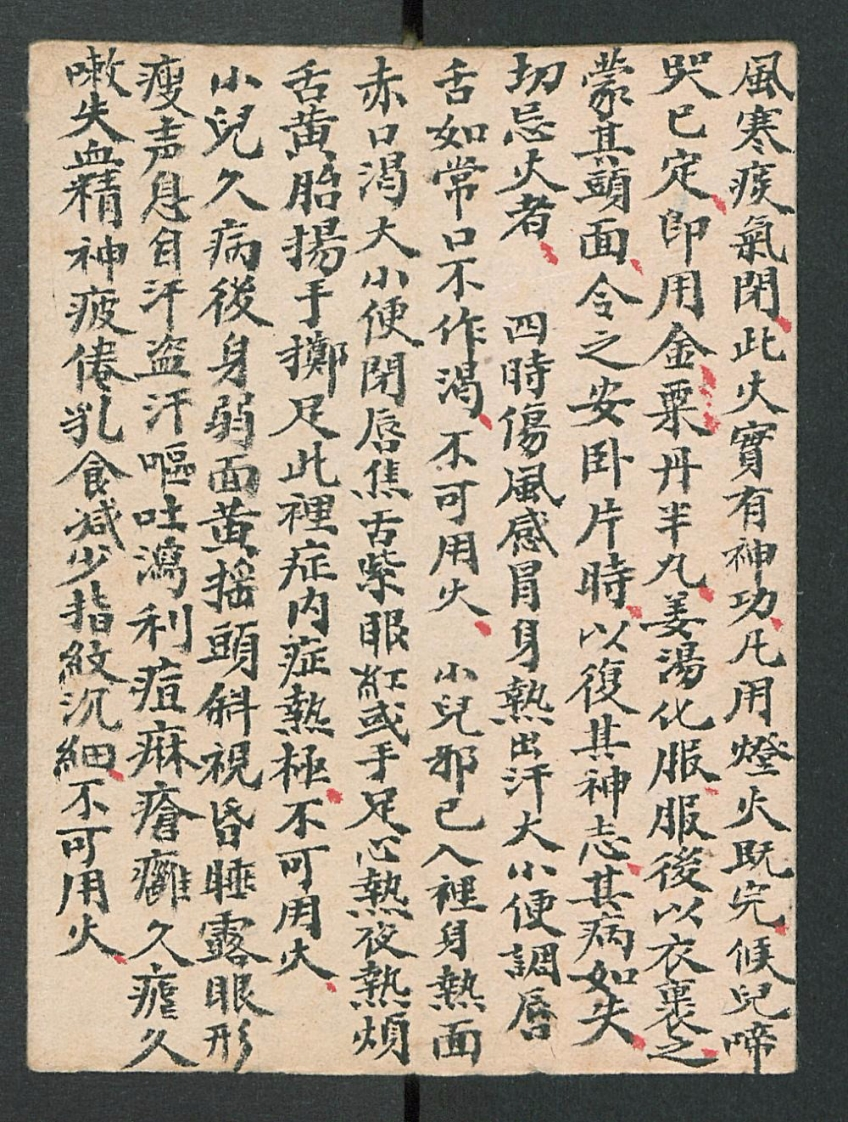 風寒痰氣閉此火實有神功凡用燈火既完候兒啼
哭已定即用金粟丹半丸姜湯化服服後以衣裹之
蒙其頭面令之安卧片時以復其神志其病如失
切忌火者 四時傷風感冒身熱出汗大小便調唇
舌如常口不作渴不可用火 小兒邪已入裡身熱面
赤口渴大小便閉唇焦舌紫眼紅或手足心熱夜熱煩
舌黃胎揚手擲足此裡症内症熱極不可用火
小兒久病後身弱面黃搖頭斜視昏睡露眼形
瘦声息自汗盗汗嘔吐瀉利痘麻瘡癰久瘧久
嗽失血精神疲倦乳食减少指紋沉細不可用火